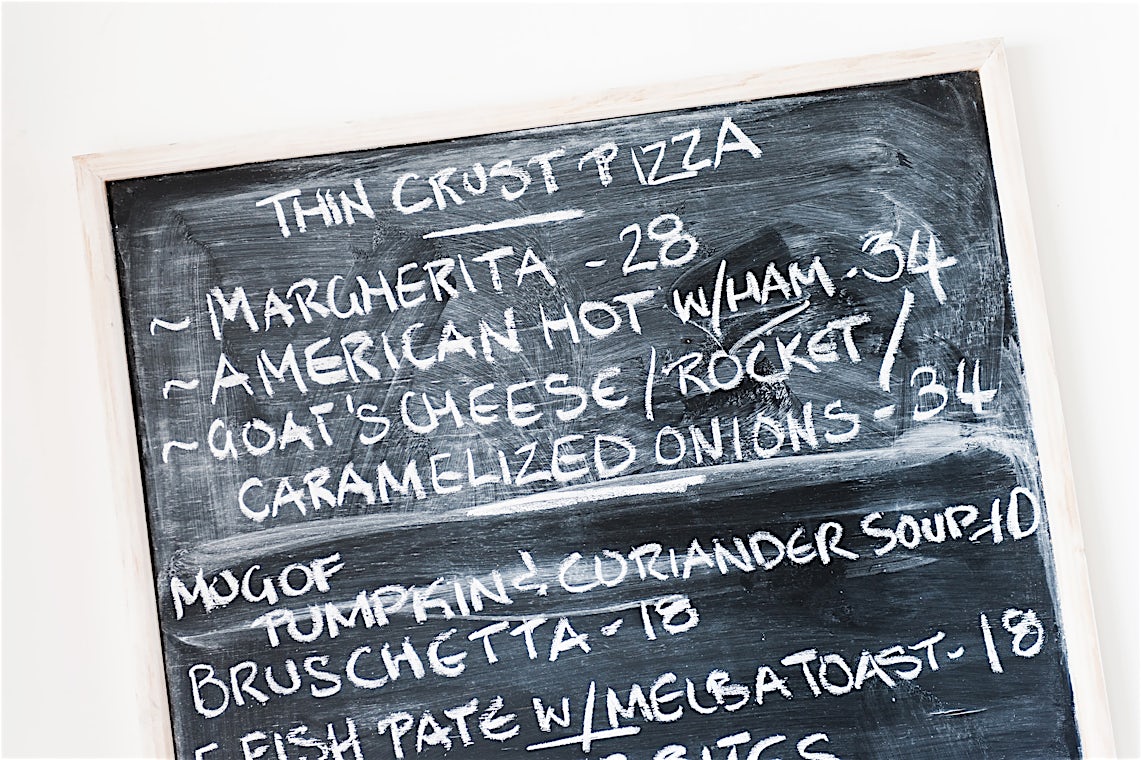 THIN CRUST PIZZA
~ MARGHERITA - 28
~ AMERICAN HOT W/HAM - 34
~ GOAT'S CHEESE / ROCKET /
CARAMELIZED ONIONS - 34
MUG OF
PUMPKIN & CORIANDER SOUP - 10
BRUSCHETTA - 18
FISH PATE W/MELBA TOAST - 18